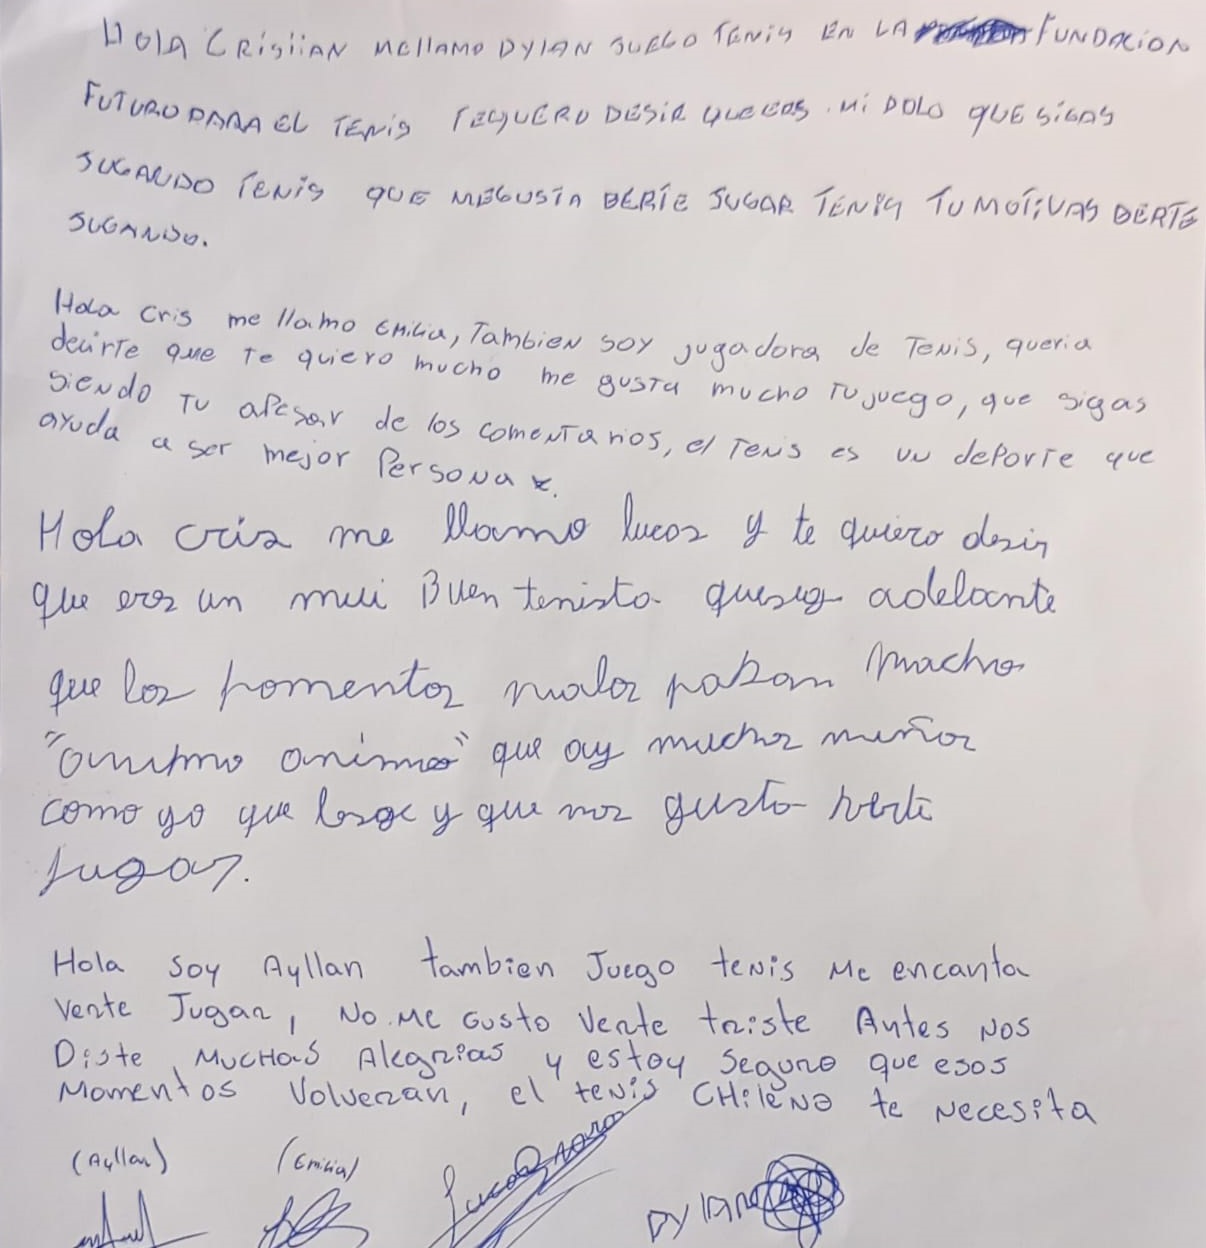 HOLA CRISTIAN MELLAMO DYLAN JUEGO TENIS EN LA FUNDACION
FUTURO PARA EL TENIS TEQUERO DESIR QUE EOS MI DOLO QUE SIGAS
JUGANDO TENIS QUE MEGUSTA BERTE JUGAR TENIS TU MOTIVAS BERTE
JUGANDO.
Hola Cris me llamo Emilia, Tambien soy jugadora de Tenis, queria
decirte que te quiero mucho me gusta mucho Tu juego, que sigas
siendo Tu apesar de los comentarios, el Tenis es un deporte que
ayuda a ser mejor Persona
Hola cris me llamo lucas y te quiero desir
que eres un mui Buen tenista adelante
que los momentos malos pasan
"animo animo" que ay muchos
como yo que y que nos gusta verte
jugar.
Hola soy Ayllan tambien Juego tenis Me encanta
verte Jugar, No Me Gusto verte triste Antes Nos
Diste MUCHAS Alegrias y estoy Seguro que esos
Momentos Volveran, el tenis CHILENO te Necesita
(Ayllan) (Emilia)
DYLAN